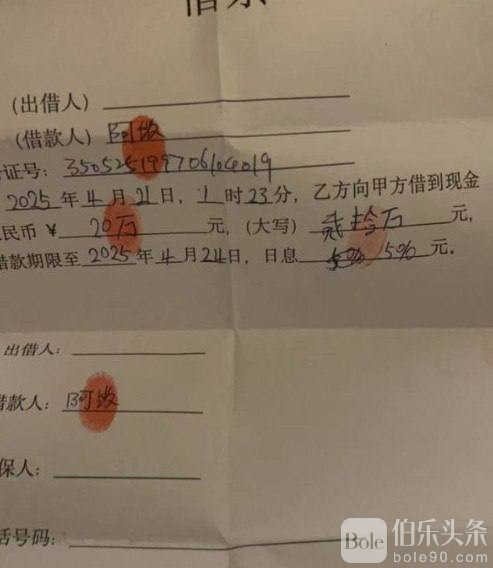 借条
(出借人)
(借款人) 阿故
证号: 350525199706104019
2025年4月21日, 1时23分, 乙方向甲方借到现金
民币¥ 20万 元, (大写) 贰拾万 元,
借款期限至2025年4月24日, 日息 5% 5% 元.
出借人:
借款人: 阿故
保人:
话号码:
Bole 伯乐头条
bole90.com